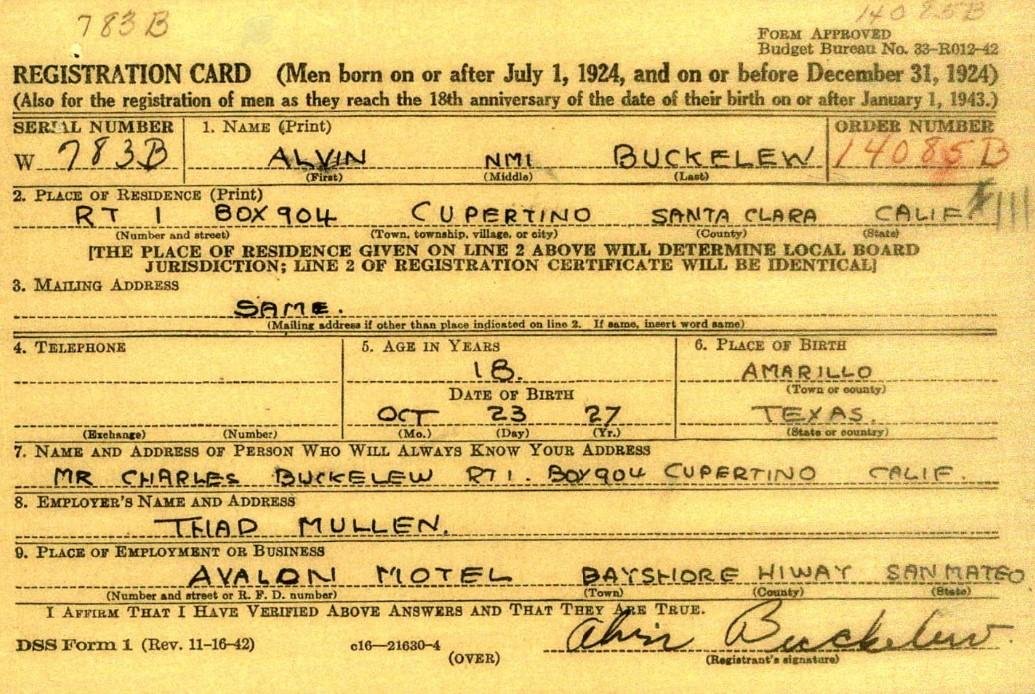 783B 14085B
FORM APPROVED
Budget Bureau No. 33-R012-42
REGISTRATION CARD (Men born on or after July 1, 1924, and on or before December 31, 1924)
(Also for the registration of men as they reach the 18th anniversary of the date of their birth on or after January 1, 1943.)
SERIAL NUMBER 1. NAME (Print) ORDER NUMBER
W 783B ALVIN NMI BUCKELEW 14085B
(First) (Middle) (Last)
2. PLACE OF RESIDENCE (Print)
RT 1 BOX 904 CUPERTINO SANTA CLARA CALIF.
(Number and street) (Town, township, village, or city) (County) (State)
[THE PLACE OF RESIDENCE GIVEN ON LINE 2 ABOVE WILL DETERMINE LOCAL BOARD
JURISDICTION; LINE 2 OF REGISTRATION CERTIFICATE WILL BE IDENTICAL]
3. MAILING ADDRESS
SAME.
(Mailing address if other than place indicated on line 2. If same, insert word same)
4. TELEPHONE 5. AGE IN YEARS 6. PLACE OF BIRTH
18. AMARILLO
DATE OF BIRTH (Town or county)
OCT 23 27 TEXAS.
(Exchange) (Number) (Mo.) (Day) (Yr.) (State or country)
7. NAME AND ADDRESS OF PERSON WHO WILL ALWAYS KNOW YOUR ADDRESS
MR CHARLES BUCKELEW RT 1. BOX 904 CUPERTINO CALIF.
8. EMPLOYER'S NAME AND ADDRESS
THAD MULLEN.
9. PLACE OF EMPLOYMENT OR BUSINESS
AVALON MOTEL BAYSHORE HIWAY SAN MATEO
(Number and street or R. F. D. number) (Town) (County) (State)
I AFFIRM THAT I HAVE VERIFIED ABOVE ANSWERS AND THAT THEY ARE TRUE.
DSS Form 1 (Rev. 11-16-42) c16—21630-4 Alvin Buckelew
(OVER) (Registrant's signature)